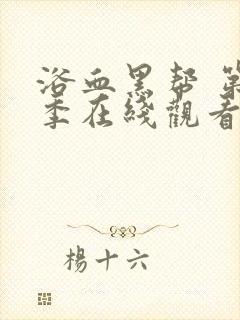 浴血黑帮 第
季在綫觀看
楊十六